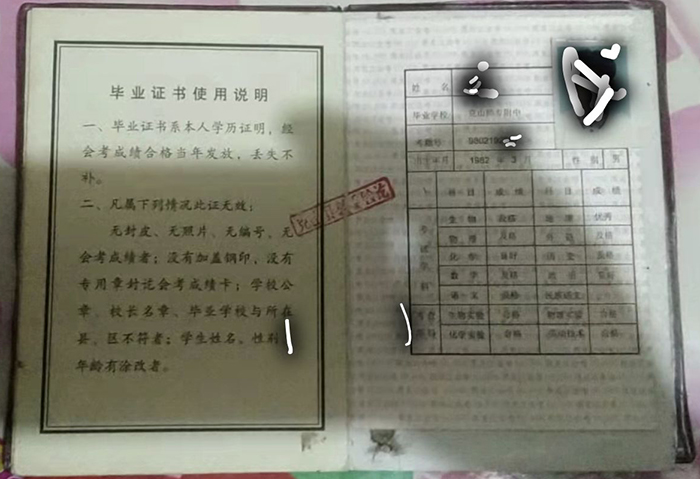 毕业证书使用说明
一、毕业证书系本人学历证明，经
会考成绩合格当年发放，丢失不
补。
二、凡属下列情况此证无效：
无封皮、无照片、无编号、无
会考成绩者；没有加盖钢印，没有
专用章封讫会考成绩卡；学校公
章、校长名章、毕业学校与所在
县、区不符者；学生姓名、性别
年龄有涂改者。
姓 名
毕业学校 克山师专附中
考籍号
出生年月 1982 年 3 月 性 别 男
科 目 成 绩 科 目 成 绩
生 物 及格 地 理 优秀
物 理 及格 外 语 及格
化 学 良好 历 史
数 学 及格 政 治 良好
语 文 及格
生物实验 合格 物理实验 合格
化学实验 合格 劳动技术 合格